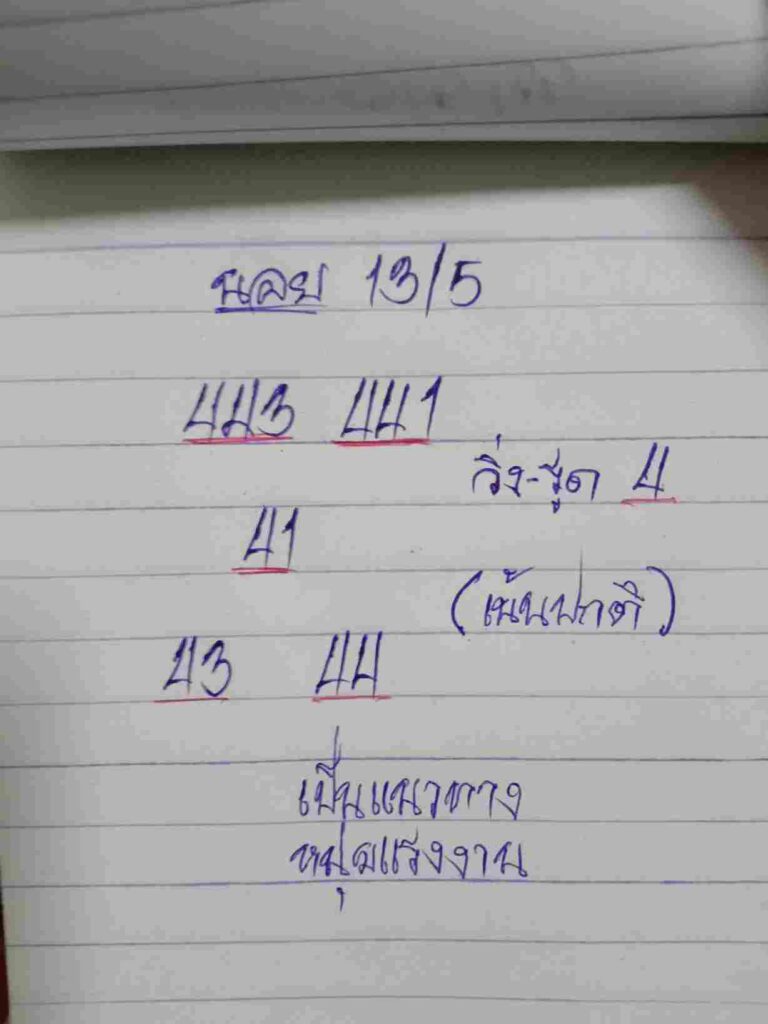 นอย 13/5
443 441
วิ่ง-รูด 4
41
(เน้นปกติ)
43 44
เป็นแนวทาง
หนุ่มแรงงาน